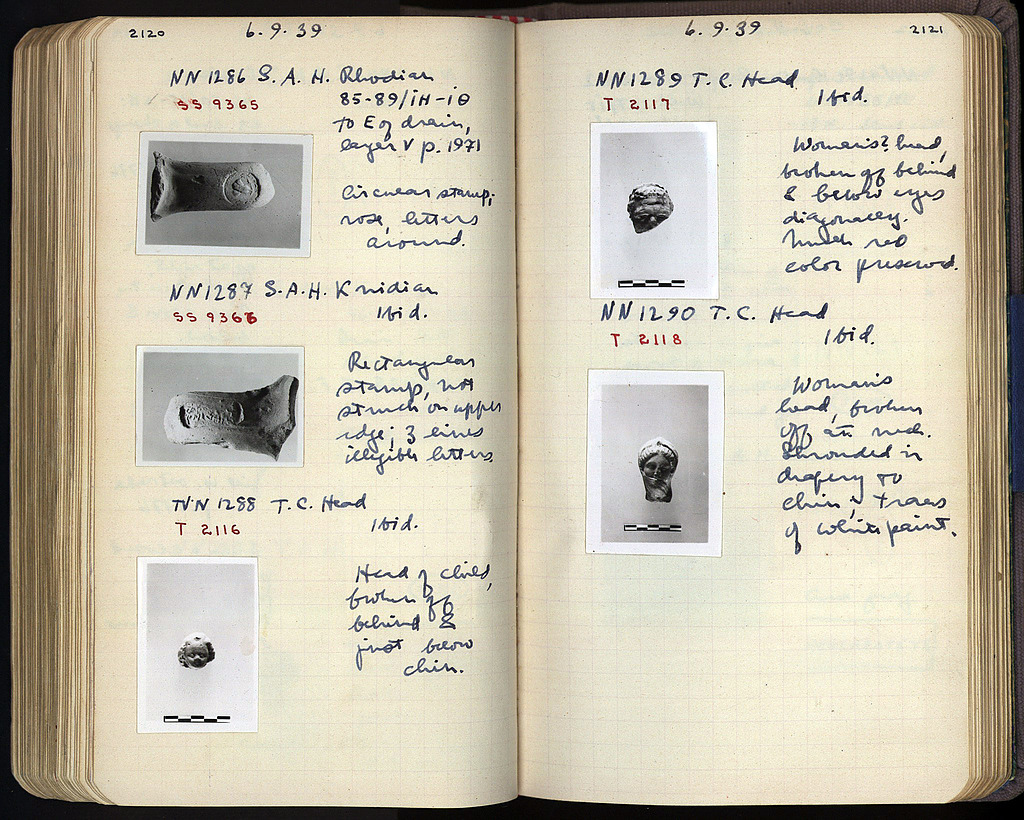 2120
6.9.39
NN 1286 S. A. H. Rhodian
SS 9365
85-89/ΙΗ-ΙΘ
to E of drain,
layer V p. 1971
Circular stamp;
rose, letters
around.
NN 1287 S.A.H. Knidian
SS 9366
Ibid.
Rectangular
stamp, not
struck on upper
edge; 3 lines
illegible letters.
NN 1288 T.C. Head
T 2116
Ibid.
Head of child,
broken off
behind &
just below
chin.
6.9.39
2121
NN 1289 T.C. Head
T 2117
Ibid.
Woman's? head,
broken off behind
& below eyes
diagonally.
Much red
color preserved.
NN 1290 T.C. Head
T 2118
Ibid.
Woman's
head, broken
off at neck.
Shrouded in
drapery to
chin; traces
of white paint.